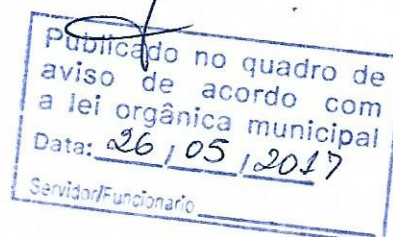 Publicado no quadro de
aviso de acordo com
a lei orgânica municipal
Data: 26 / 05 / 2017
Servidor/Funcionario